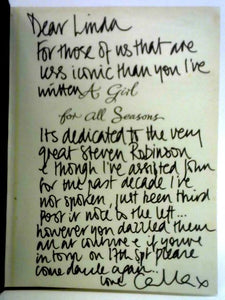 Dear Linda
For those of us that are
less iconic than you I've
written A Girl
for all Seasons
Its dedicated to the very
great Steven Robinson
& though I've assisted John
for the past decade I've
not spoken, just been third
post it note to the left...
however you dazzled them
all at couture & if you're
in town on 17th Spt please
come dance again...
love x